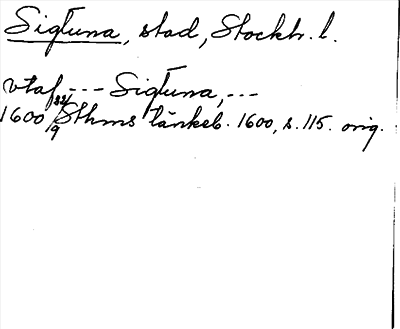 Sigtuna, stad, Stockh. l.
vtaf --- Sigtuna, ---
1600 22/9 Sthms tänkeb. 1600, s. 115. orig.